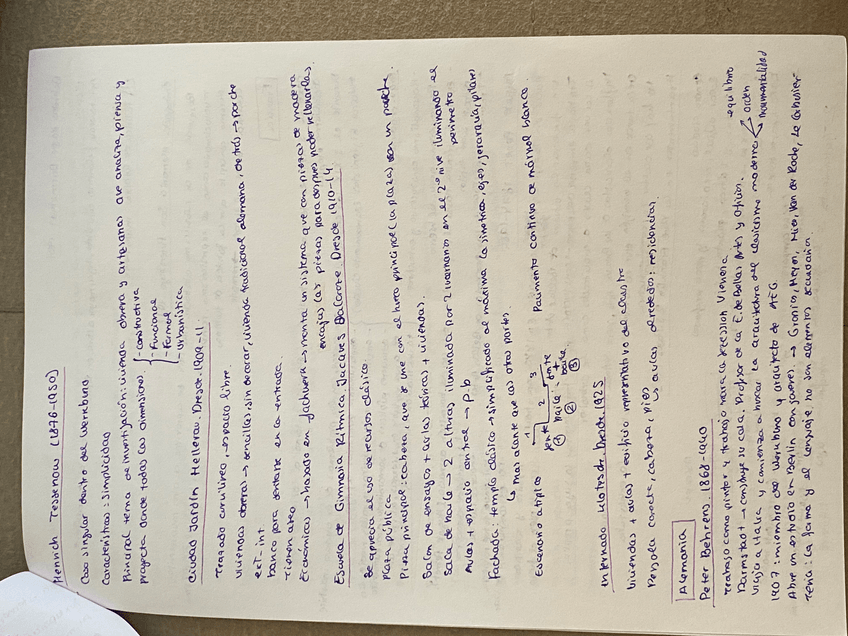 Heinrich Tessenow (1876-1950)
Caso singular dentro del Werkbung
Características: simplicidad
Principal tema de investigación: vivienda obrera y artesanas que analiza, piensa y
proyecta desde todas las dimensiones
- constructiva
- Funcional
- Formal
- Urbanística
Ciudad Jardín Hellerau. Dresde. 1909-11
Trazado curvilíneo, espacio libre
Viviendas obreras → sencillas, sin decorar, vivienda tradicional alemana, detrás → porche
ext - int
banco para sentarse en la entrada
Tienen ático
Económicas → basado en fachwerk → monta un sistema que con piezas de madera
encaja las piezas para después poder rellenarlas
Escuela de Gimnasia Rítmica. Jacques Dalcroze. Dresde 1910-14
Se aprecia el uso de recursos clásicos
Plaza pública
Pieza principal: cabeza, que se une con el huso principal (la plaza) con un porche.
Salón de ensayos + aulas teóricas + viviendas.
Sala de baile → 2 alturas iluminada por 2 lucernarios en el 2º nivel iluminando el
perímetro.
Aulas + espacio central → p b
Fachada: templo clásico → simplificado al máximo la simetría, ejes, jerarquía, pilares
↳ mas alante que las otras partes.
Escenario atípico
1 2 3
gente baile gente
+
baile
① ② ③
Pavimento continuo de mármol blanco.
Internado Klotzsche. Dresde. 1925
Viviendas + aulas + edificio representativo del claustro
Pérgola conecta, cabeza, pies
↳ aulas alrededor: residencias.
Alemania
Peter Behrens. 1868-1940
Trabajó como pintor y trabajo hacia la Secession Vienesa
Darmstadt → construye su casa. Profesor de la E. de Bellas Artes y Oficios.
Viaja a Italia y comienza a buscar la arquitectura del clasicismo moderno
equilibrio
orden
monumentalidad
1907: miembro del Werkbung y arquitecto de AEG.
Abre un estudio en Berlín con jovenes → Gropius, Meyer, Mies, Van der Rohe, Le Corbusier-
Tenía: La forma y el lenguaje no son elementos secundarios.